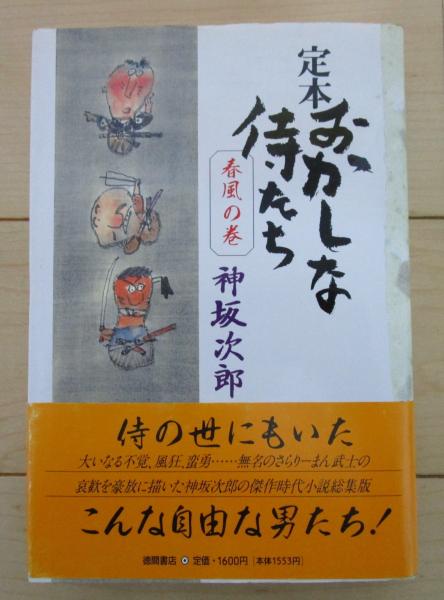 定本
おかしな
侍たち
春風の巻
神坂次郎
侍の世にもいた
大いなる不覚、風狂、蛮勇……無名のさらりーまん武士の
哀歓を豪放に描いた神坂次郎の傑作時代小説総集版
こんな自由な男たち!
徳間書店 定価・1600円 [本体1553円]